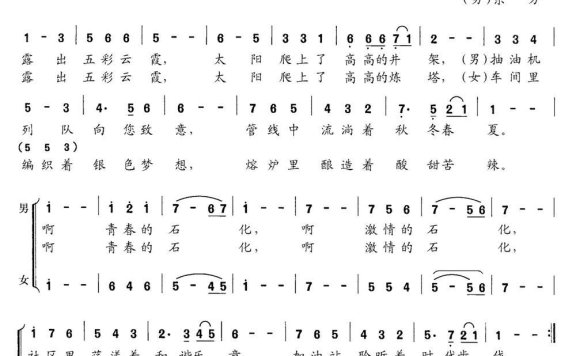 1 - 3 | 5 6 6 | 5 - - | 6 - 5 | 3 3 1 | 6 6 6 7 1 | 2 - - | 3 3 4 |
露 出 五彩云 霞, 太 阳 爬上了 高高的井 架, (男)抽油机
露 出 五彩云 霞, 太 阳 爬上了 高高的炼 塔, (女)车间里
5 - 3 | 4· 5 6 | 6 - - | 7 6 5 | 4 3 2 | 7· 5 2 1 | 1 - - |
列 队 向 您致 意, 管线中 流淌着 秋 冬春 夏。
(5 5 3)
编织着 银 色梦 想, 熔炉里 酿造着 酸 甜苦 辣。
男 1 - - | 1 2 1 | 7 - 6 7 | 1 - - | 7 - - | 7 5 6 | 7 - 5 6 | 7 - - |
啊 青春的 石 化, 啊 激情的 石 化,
啊 青春的 石 化, 啊 激情的 石 化,
女 1 - - | 6 4 6 | 5 - 4 5 | 1 - - | 7 - - | 5 5 4 | 5 - 5 6 | 7 - - |
1 7 6 | 5 4 3 | 2· 3 4 5 | 1 - - | 7 6 5 | 4 3 2 | 5· 7 2 1 | 1 - - :|